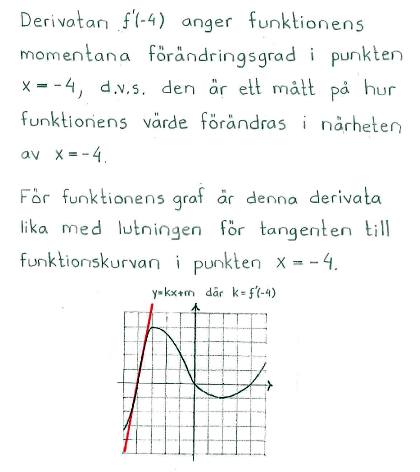 Derivatan f'(-4) anger funktionens
momentana förändringsgrad i punkten
x = -4, d.v.s. den är ett mått på hur
funktionens värde förändras i närheten
av x = -4.
För funktionens graf är denna derivata
lika med lutningen för tangenten till
funktionskurvan i punkten x = -4.
y=kx+m där k = f'(-4)